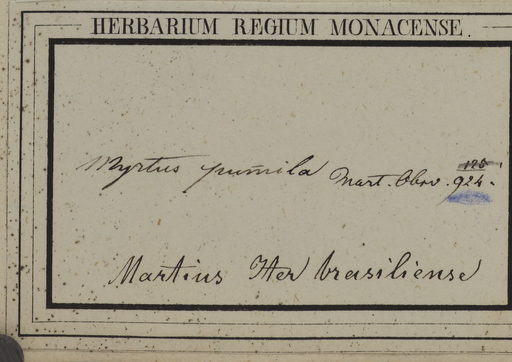 HERBARIUM REGIUM MONACENSE.
Myrtus pumila Mart. Obsv. 924.
Martius Iter brasiliense